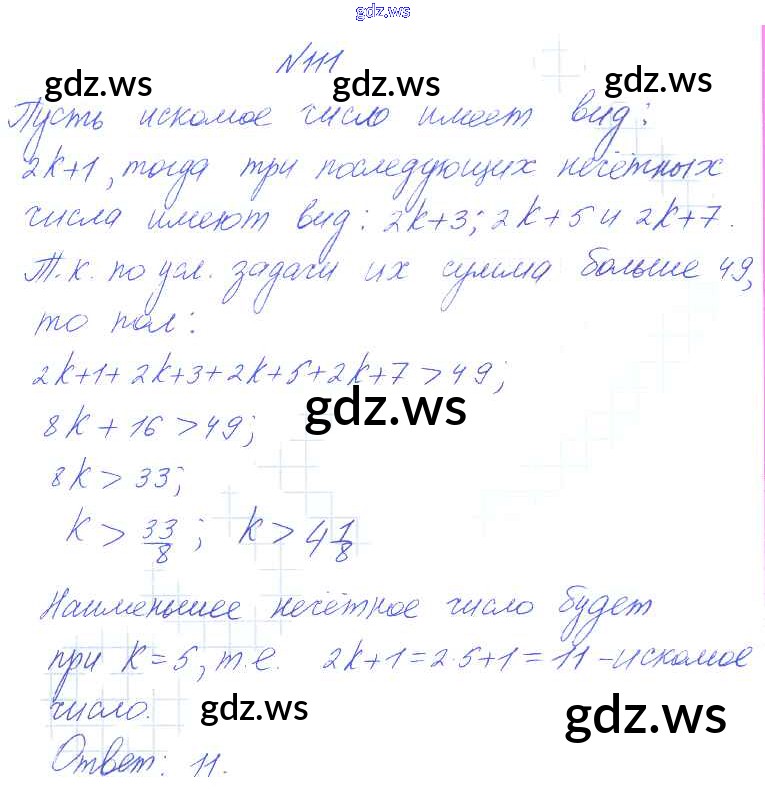 gdz.ws
N111
gdz.ws
gdz.ws
Пусть искомое число имеет вид:
2k+1, тогда три последующих нечётных
числа имеют вид: 2k+3; 2k+5 и 2k+7.
Т.к. по усл. задачи их сумма больше 49,
то пол:
2k+1+2k+3+2k+5+2k+7>49;
gdz.ws
8k+16>49;
8k>33;
k>33/8; k>4 1/8
Наименьшее нечётное число будет
при k=5, т.е. 2k+1=2·5+1=11-искомое
число.
gdz.ws
gdz.ws
Ответ: 11.